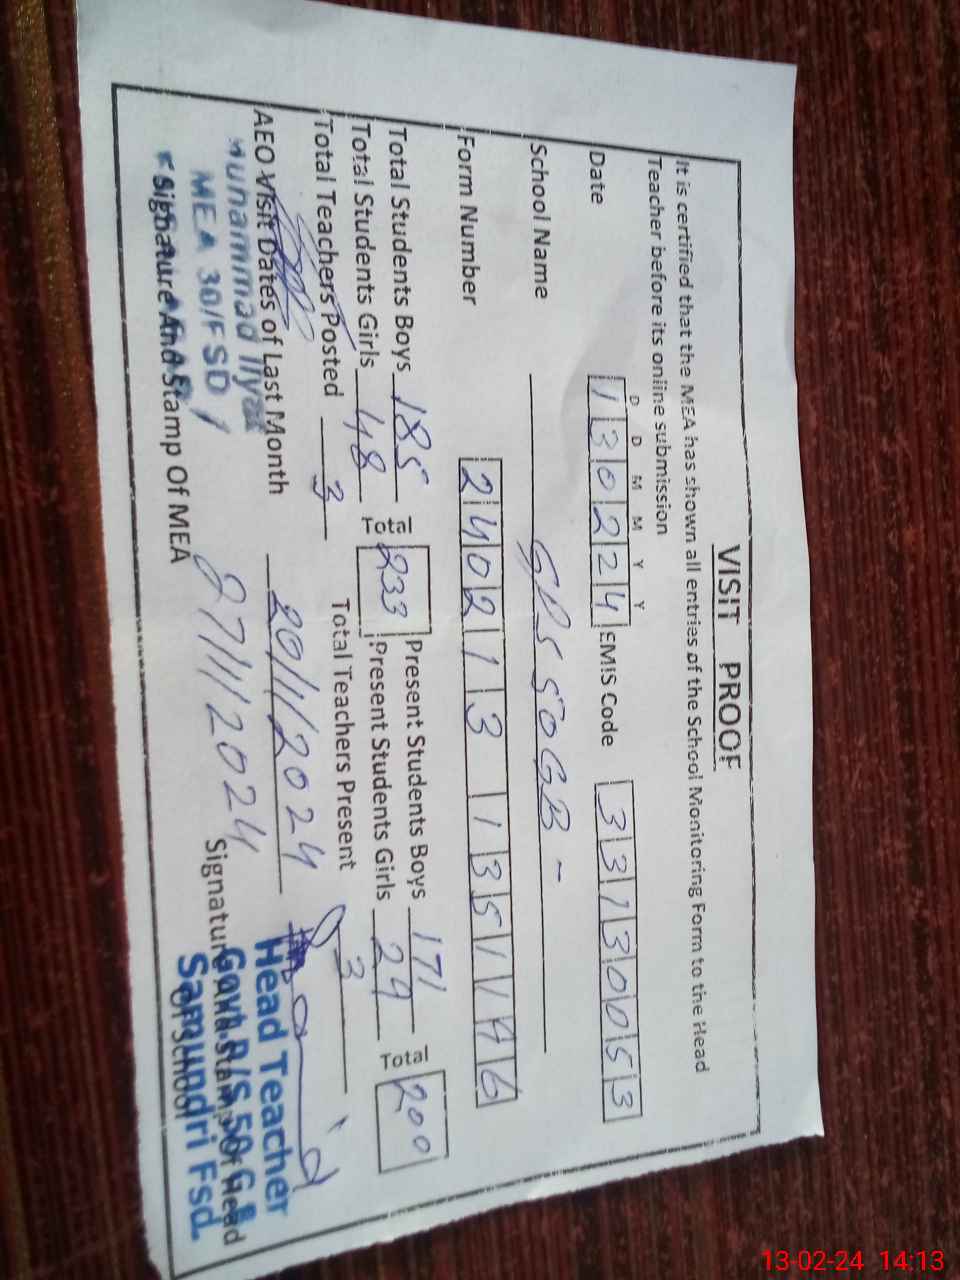 VISIT PROOF
It is certified that the MEA has shown all entries of the School Monitoring Form to the Head
Teacher before its online submission
D D M M Y Y
Date 130224 EMIS Code 33130053
School Name GPS 50GB -
Form Number 2402 13 135
Total Students Boys 185 Total 233 Present Students Boys 171 Total 200
Total Students Girls 48 Present Students Girls 29
Total Teachers Posted 3 Total Teachers Present 3
AEO Visit Dates of Last Month 20/1/2024
27/1/2024
Muhammad Ilyas
MEA 30/FSD
Signature And Stamp Of MEA
Signature And Stamp Of Head
Of School
Head Teacher
Govt. P/S 50 G.B
Samundri Fsd.
13-02-24 14:13